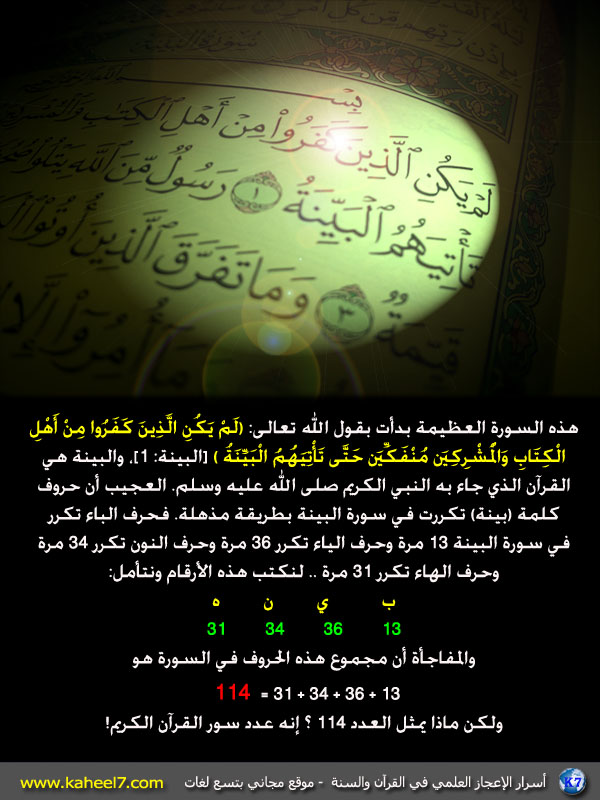 سُورَةُ البَيِّنَةِ
بِسْـ
لَمْ يَكُنِ ٱلَّذِينَ كَفَرُوا۟ مِنْ أَهْلِ ٱلْكِتَٰبِ
تَأْتِيَهُمُ ٱلْبَيِّنَةُ ١ رَسُولٌ مِّنَ ٱللَّهِ يَتْلُوا۟
قَيِّمَةٌ ٣ وَمَا تَفَرَّقَ ٱلَّذِينَ أُوتُوا۟
وَمَآ أُمِرُوٓا۟ إِلَّا
هذه السورة العظيمة بدأت بقول الله تعالى: (لَمْ يَكُنِ الَّذِينَ كَفَرُوا مِنْ أَهْلِ
الْكِتَابِ وَالْمُشْرِكِينَ مُنْفَكِّينَ حَتَّى تَأْتِيَهُمُ الْبَيِّنَةُ ) [البينة: 1]. والبينة هي
القرآن الذي جاء به النبي الكريم صلى الله عليه وسلم. العجيب أن حروف
كلمة (بينة) تكررت في سورة البينة بطريقة مذهلة. فحرف الباء تكرر
في سورة البينة 13 مرة وحرف الياء تكرر 36 مرة وحرف النون تكرر 34 مرة
وحرف الهاء تكرر 31 مرة .. لنكتب هذه الأرقام ونتأمل:
ب ي ن ه
13 36 34 31
والمفاجأة أن مجموع هذه الحروف في السورة هو
13 + 36 + 34 + 31 = 114
ولكن ماذا يمثل العدد 114 ؟ إنه عدد سور القرآن الكريم!
K7 أسرار الإعجاز العلمي في القرآن والسنة - موقع مجاني بتسع لغات www.kaheel7.com